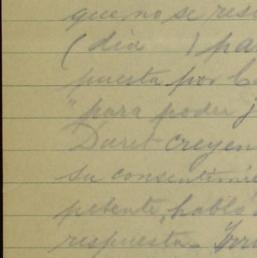 que no se res
(dia ) pa
puesta por C
"para poder j
Duret creyen
su consentimie
petente, habló
respuesta.